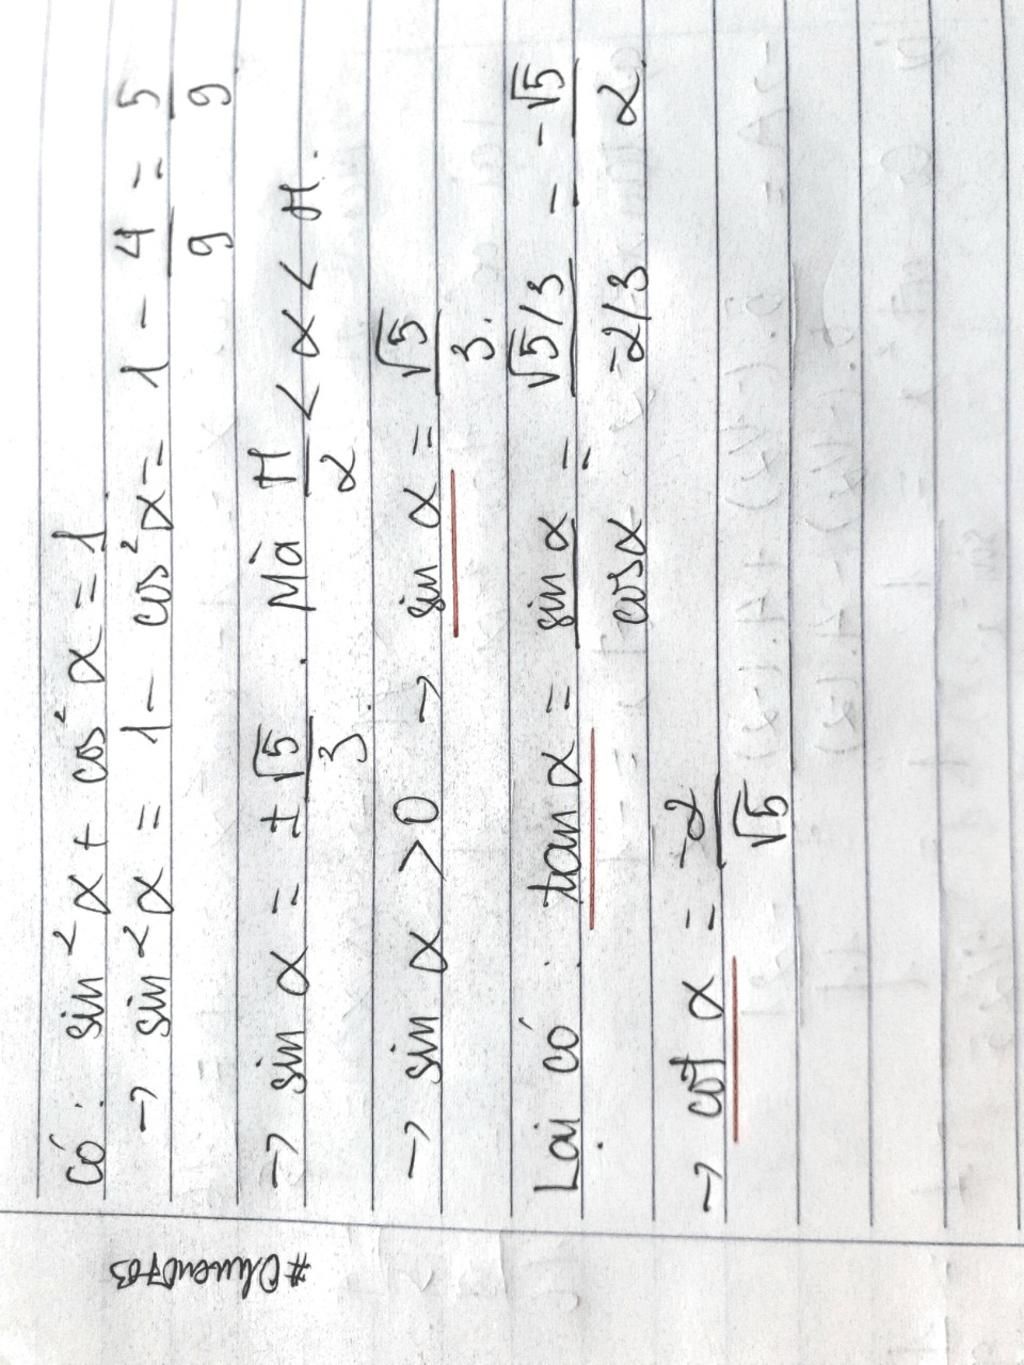 Có: sin²α + cos²α = 1
→ sin²α = 1 - cos²α = 1 - 4/9 = 5/9
→ sin α = ±√5/3. Mà π/2 < α < π.
→ sin α > 0 → sin α = √5/3.
Lại có: tan α = sin α/cos α = (√5/3)/(-2/3) = -√5/2
→ cot α = -2/√5